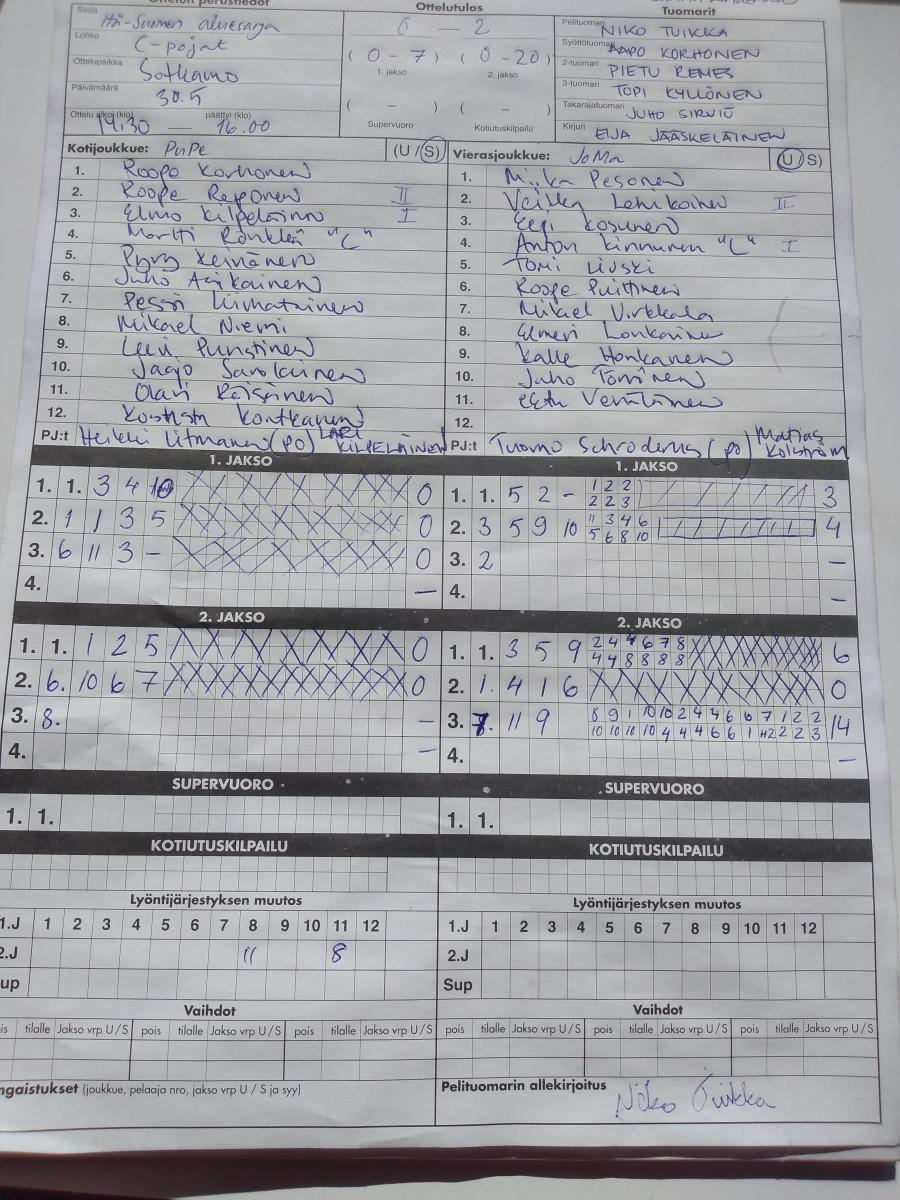 Ottelun perustiedot
Ottelutulos
Tuomarit
Sarja Itä-Suomen aluesarja
Lohko C-pojat
Ottelupaikka Sotkamo
Päivämäärä 30.5
Ottelu alkoi (klo) päättyi (klo)
14.30 — 16.00
0 — 2
( 0 - 7 ) ( 0 - 20 )
1. jakso 2. jakso
( - ) ( - )
Supervuoro Kotiutuskilpailu
Pelituomari NIKO TUIKKA
Syöttötuomari AAPO KORHONEN
2-tuomari PIETU REMES
3-tuomari TOPI KYLLÖNEN
Takarajatuomari JUHO SIRVIÖ
Kirjuri EIJA JÄÄSKELÄINEN
Kotijoukkue: PuPe (U / S)
1. Roope Korhonen
2. Roope Reponen II
3. Elmo Kilpeläinen I
4. Martti Rönkkö "C"
5. Pyry Keinänen
6. Juho Asikainen
7. Pessi Liimatainen
8. Mikael Niemi
9. Leevi Purstinen
10. Jaajo Savolainen
11. Olavi Räisänen
12. Kontkanen
PJ:t Heikki Litmanen (PO) LARI KILPELÄINEN
Vierasjoukkue: JoMa (U / S)
1. Miika Pesonen
2. Veikka Lehikoinen II
3. Eepi Kosunen
4. Anton Kinnunen "C" I
5. Tomi Liuski
6. Roope Puittinen
7. Mikael Virkkala
8. Elmeri Lonkainen
9. Kalle Honkanen
10. Juho Törrönen
11. Eetu Venäläinen
12.
PJ:t Tuomo Schroderus (po) Matias Kolström
1. JAKSO
1. 1. 3 4 10 0
2. 1 1 3 5 0
3. 6 11 3 - 0
4. —
1. JAKSO
1. 1. 5 2 - 1 2 2 3
2 2 3
2. 3 5 9 10 11 3 4 6 4
5 6 8 10
3. 2 —
4. —
2. JAKSO
1. 1. 1 2 5 0
2. 6. 10 6 7 0
3. 8. —
4. —
2. JAKSO
1. 1. 3 5 9 2 4 4 6 7 8 6
4 4 8 8 8 8
2. 1. 4 1 6 0
3. 7. 11 9 8 9 1 10 10 2 4 4 6 6 7 1 2 2 14
10 10 10 10 4 4 4 6 6 1 2 2 3
4. —
SUPERVUORO
1. 1.
SUPERVUORO
1. 1.
KOTIUTUSKILPAILU
KOTIUTUSKILPAILU
Lyöntijärjestyksen muutos
1.J 1 2 3 4 5 6 7 8 9 10 11 12
2.J 11 8
up
Lyöntijärjestyksen muutos
1.J 1 2 3 4 5 6 7 8 9 10 11 12
2.J
Sup
Vaihdot
is tilalle Jakso vrp U / S pois tilalle Jakso vrp U / S pois tilalle Jakso vrp U / S
Vaihdot
pois tilalle Jakso vrp U / S pois tilalle Jakso vrp U / S pois tilalle Jakso vrp U / S
ngaistukset (joukkue, pelaaja nro, jakso vrp U / S ja syy)
Pelituomarin allekirjoitus
Niko Tuikka